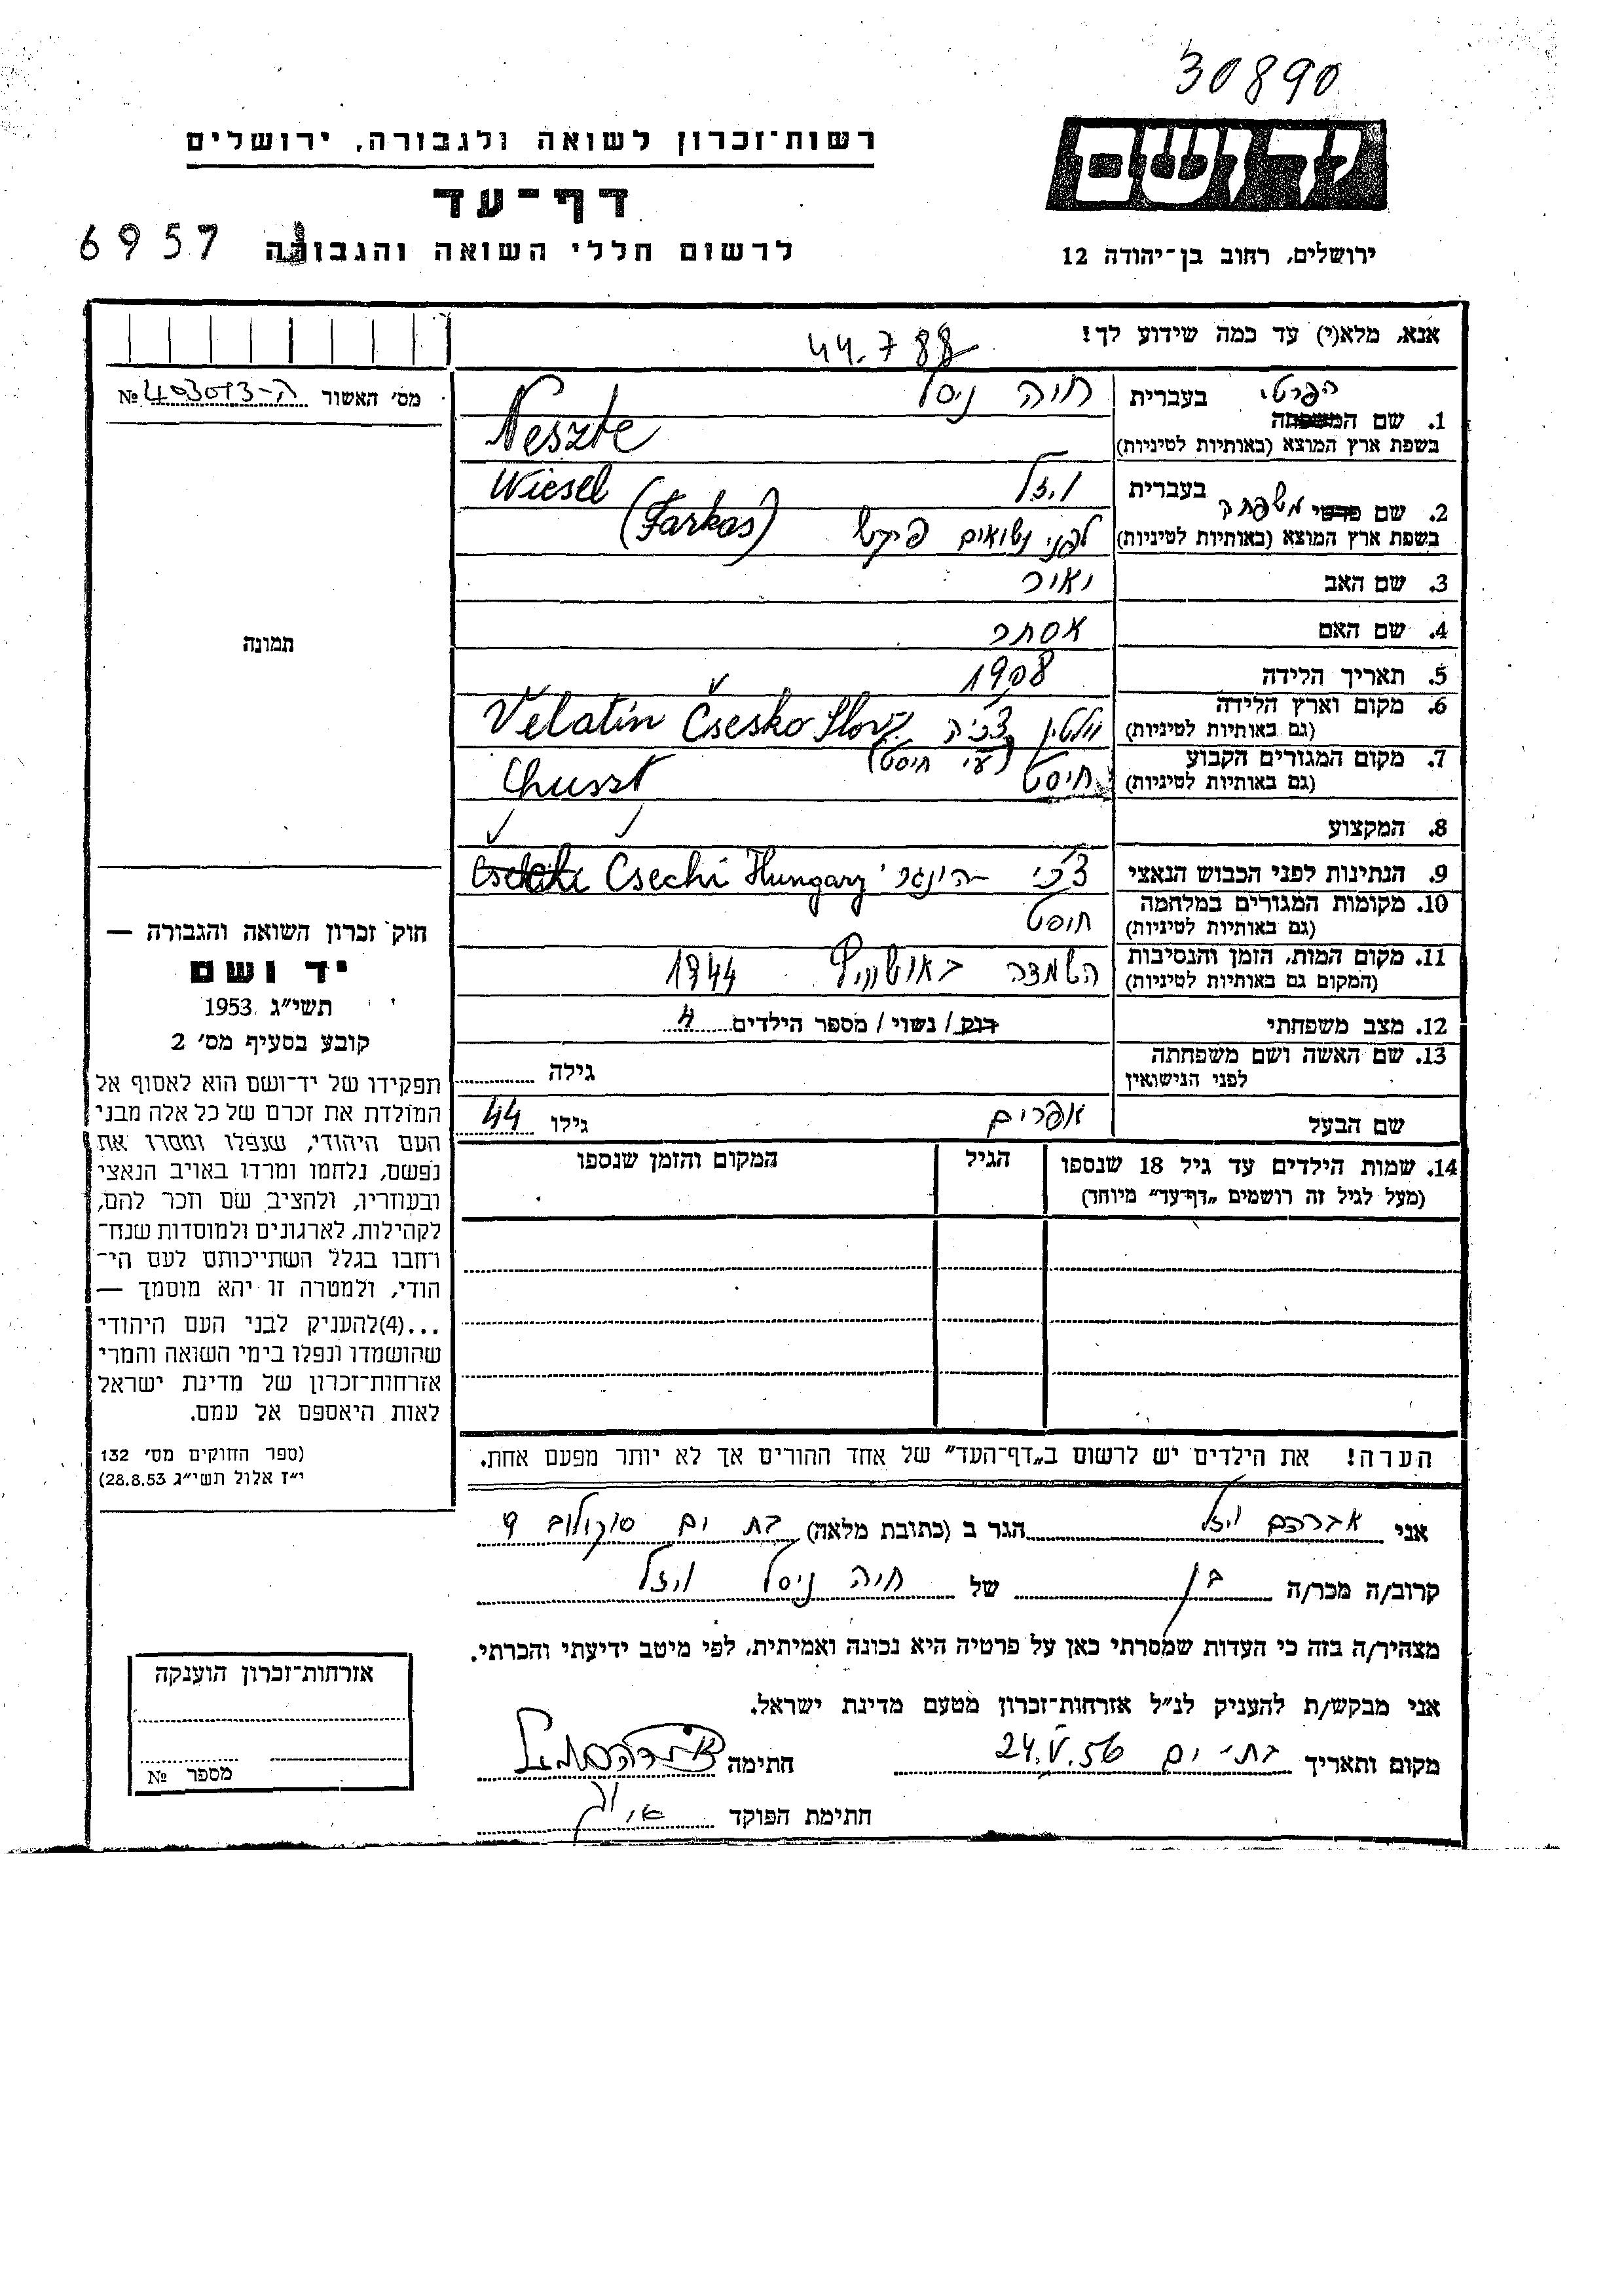 30890
יד ושם
רשות־זכרון לשואה ולגבורה, ירושלים
דף־עד
ירושלים, רחוב בן־יהודה 12
לרשום חללי השואה והגבורה
6957
אנא, מלא(י) עד כמה שידוע לך!
מס׳ האשור №
1. שם הפרטי בעברית חוה ניסל
בשפת ארץ המוצא (באותיות לטיניות) Neszte
2. שם משפחה בעברית ויזל Wiesel
בשפת ארץ המוצא (באותיות לטיניות) לפני נשואים (Farkas)
3. שם האב מאיר
4. שם האם אסתר
5. תאריך הלידה 1908
6. מקום וארץ הלידה
(גם באותיות לטיניות) צ׳כיה Velatin Csesko Slov
(ע״י חוסט)
7. מקום המגורים הקבוע
(גם באותיות לטיניות) חוסט Chuszt
8. המקצוע
9. הנתינות לפני הכבוש הנאצי צ׳כי - הונגרי Csechi Hungary
10. מקומות המגורים במלחמה
(גם באותיות לטיניות) חוסט
11. מקום המות, הזמן והנסיבות
(המקום גם באותיות לטיניות) השמדה באושוויץ 1944
12. מצב משפחתי רוק / נשוי / מספר הילדים 4
13. שם האשה ושם משפחתה
לפני הנישואין גילה
שם הבעל אפרים גילו 44
14. שמות הילדים עד גיל 18 שנספו
(מעל לגיל זה רושמים „דף־עד״ מיוחד)
הגיל
המקום והזמן שנספו
הערה! את הילדים יש לרשום ב„דף־העד״ של אחד ההורים אך לא יותר מפעם אחת.
אני אברהם ויזל הגר ב (כתובת מלאה) בת ים סוקולוב 9
קרוב/ה מכר/ה בן של חוה ניסל ויזל
מצהיר/ה בזה כי העדות שמסרתי כאן על פרטיה היא נכונה ואמיתית, לפי מיטב ידיעתי והכרתי.
אני מבקש/ת להעניק לנ״ל אזרחות־זכרון מטעם מדינת ישראל.
מקום ותאריך בת־ים 24.V.56 חתימה
חתימת הפוקד
תמונה
חוק זכרון השואה והגבורה —
יד ושם
תשי״ג 1953
קובע בסעיף מס׳ 2
תפקידו של יד־ושם הוא לאסוף אל
המולדת את זכרם של כל אלה מבני
העם היהודי, שנפלו ומסרו את
נפשם, נלחמו ומרדו באויב הנאצי
ובעוזריו, ולהציב שם וזכר להם,
לקהילות, לארגונים ולמוסדות שנח־
רחבו בגלל השתייכותם לעם הי־
הודי, ולמטרה זו יהא מוסמך —
...(4)להעניק לבני העם היהודי
שהושמדו ונפלו בימי השואה והמרי
אזרחות־זכרון של מדינת ישראל
לאות היאספם אל עמם.
(ספר החוקים מס׳ 132
י״ז אלול תשי״ג 28.8.53)
אזרחות־זכרון הוענקה
מספר №